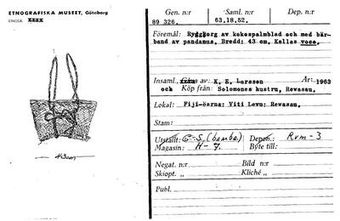 ETNOGRAFISKA MUSEET, Göteborg
43cm
Gen. n:r
89 326.
Saml. n:r
63.18.52.
Dep. n:r
Föremål: Ryggkorg av kokospalmblad och med bär-
band av pandanus, Bredd: 43 cm, Kallas vose.
Insaml. av: K. E. Larsson År: 1963
och Köp från: Solomones hustru, Rewasau,
Lokal: Fiji-öarna: Viti Levu: Rewasau,
Stam:
Utställt: G-S (bamba) Depon.: Rum-3
Magasin: H-7. Byte till:
Negat. n:r Bild n:r
Skiopt. n:r Kliché n:r
Publ.